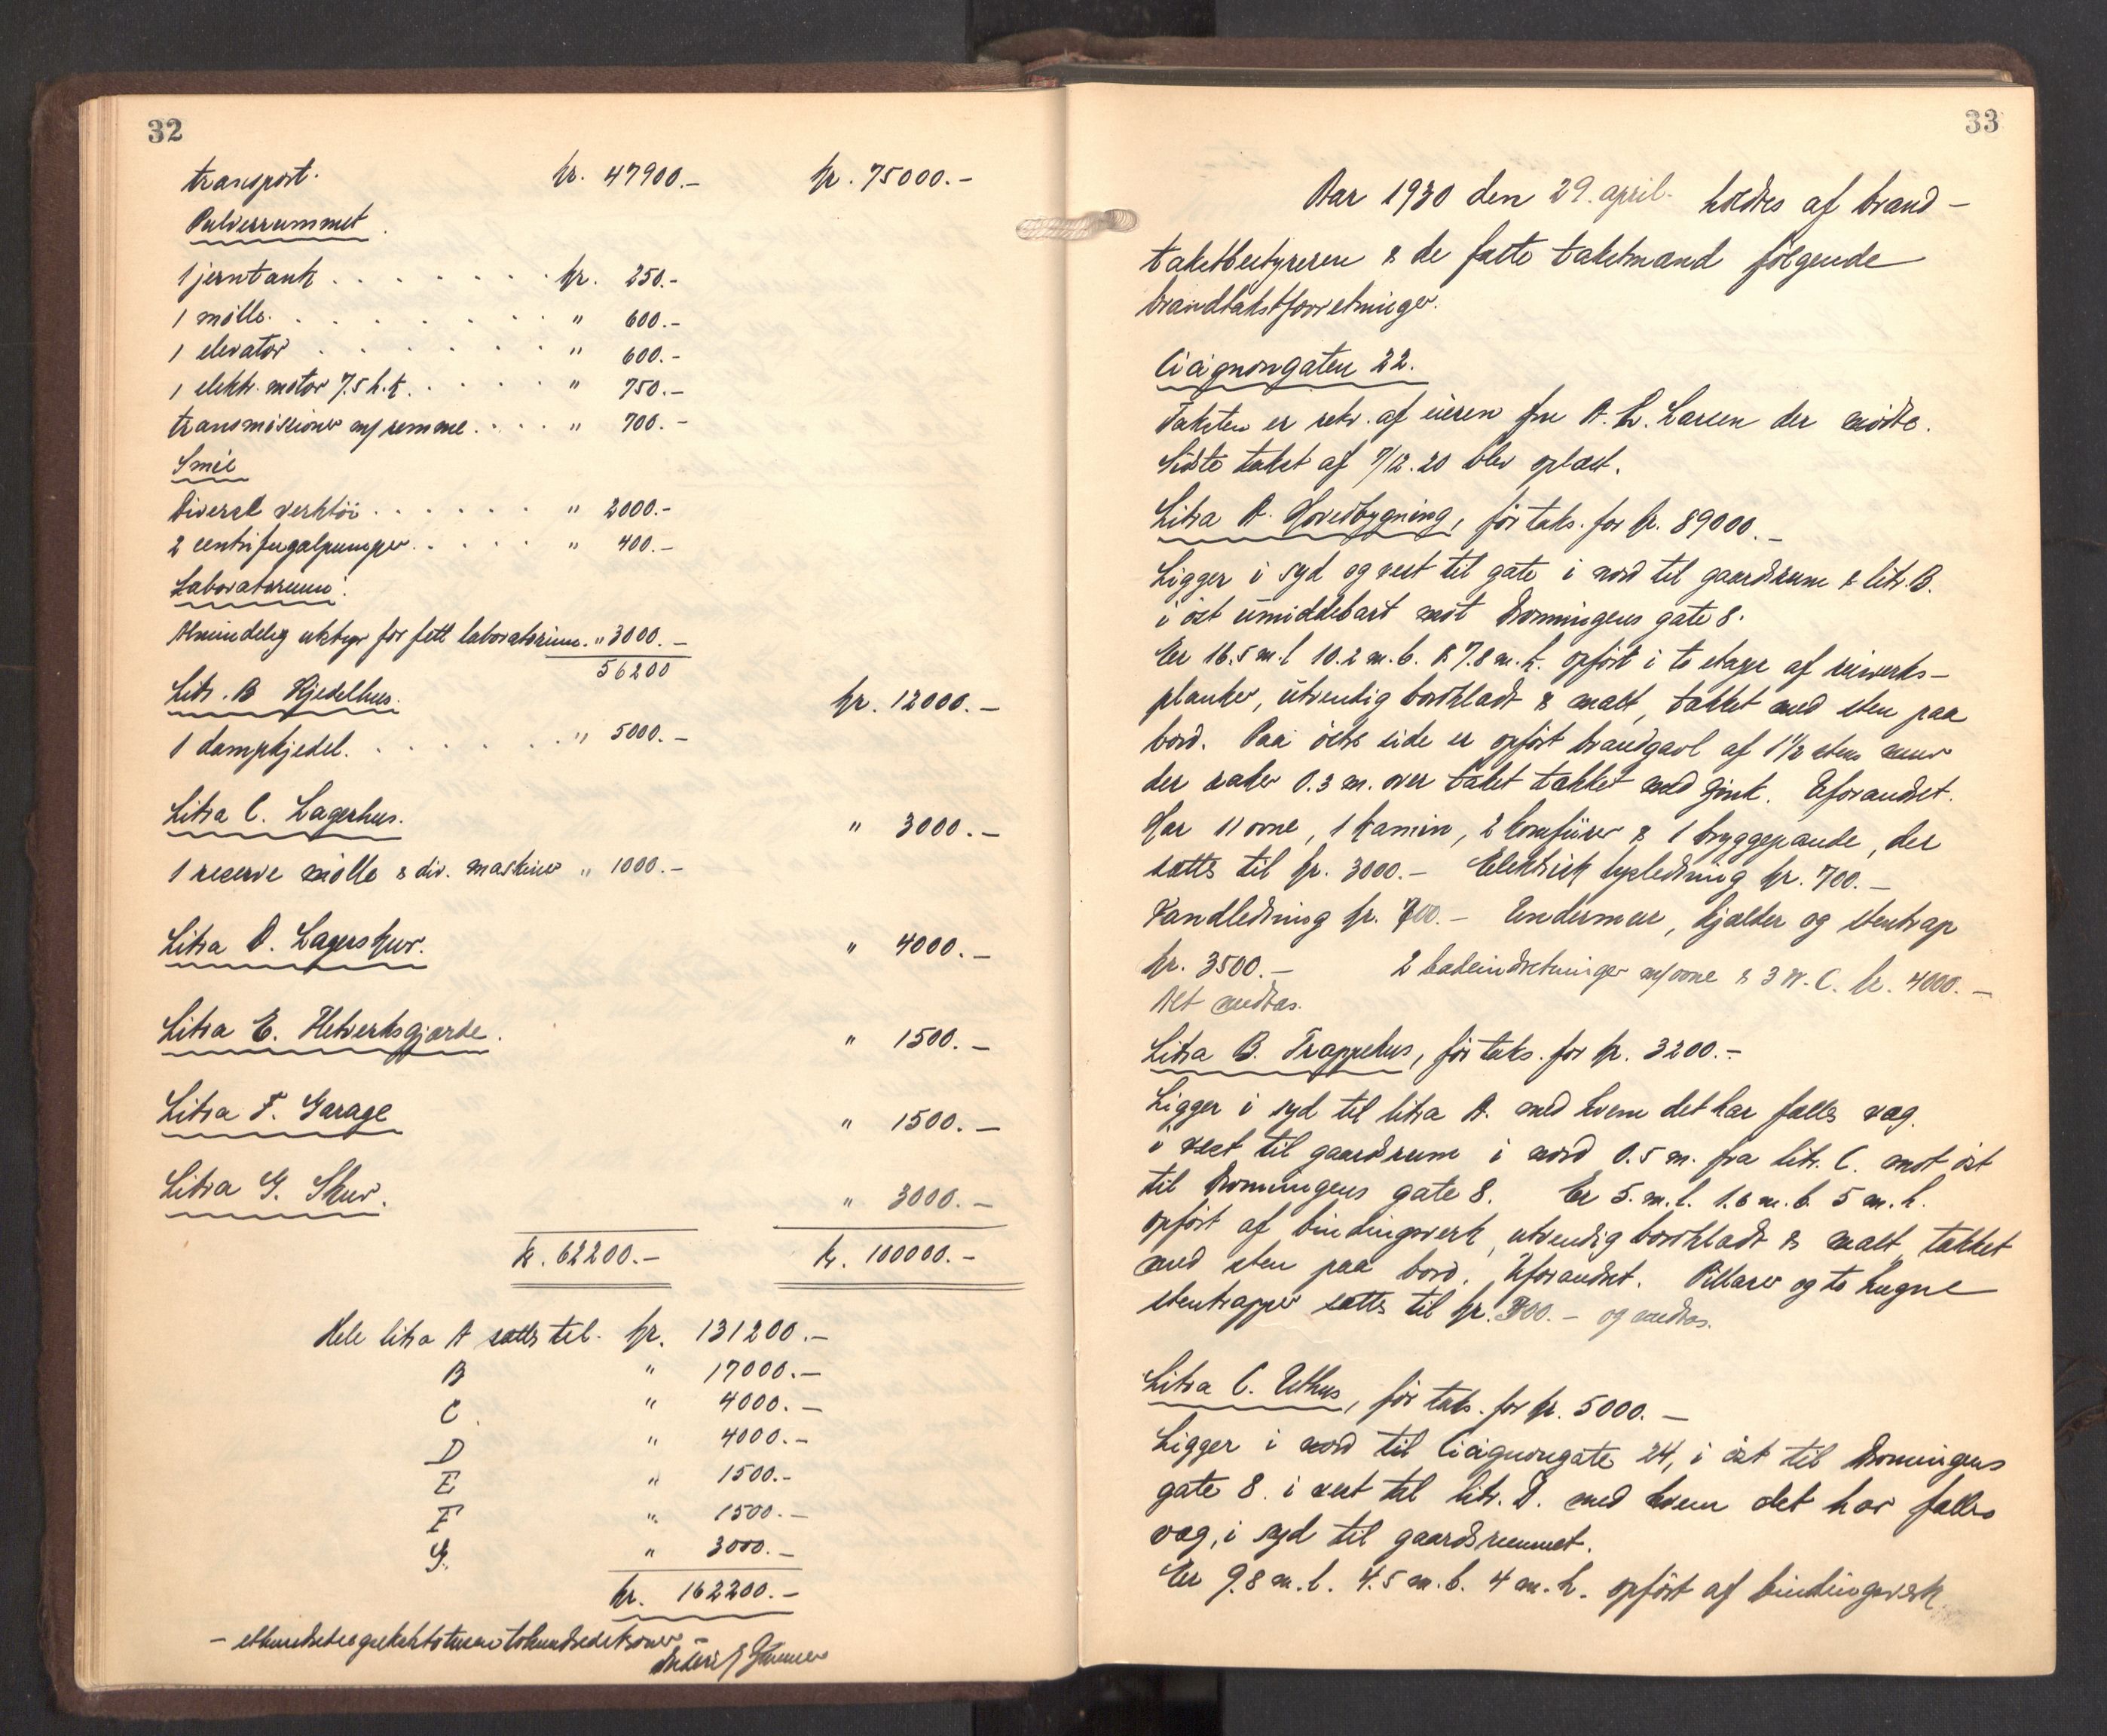 32
transport. kr. 47900.- kr. 75000.-
Pulverrummet.
1 jerntank . . . . . . . kr. 250.-
1 mölle. . . . . . . . . " 600.-
1 elevator . . . . . . . " 600.-
1 elektr. motor 7.5 h.k. . . . . " 750.-
transmissioner m/ remme . . . . " 700.-
Smie
Diverse verktöi . . . . . . " 2000.-
2 centrifugalpumper . . . . " 400.-
Laboratorium:
Almindelig utstyr for fett laboratorium. " 3000.-
56200
Litr. B Kjedelhus. kr. 12000.-
1 dampkjedel. . . . . . . . " 5000.-
Litra C. Lagerhus. " 3000.-
1 reserve mölle & div. maskiner " 1000.-
Litra D. Lagerskur. " 4000.-
Litra E. Netverksgjærde. " 1500.-
Litra F. Garage " 1500.-
Litra G. Skur. " 3000.-
kr. 62200.- kr. 100000.-
Hele litra A sættes til. kr. 131200.-
B " 17000.-
C. " 4000.-
D " 4000.-
E " 1500.-
F " 1500.-
G. " 3000.-
kr. 162200.-
- ethundredeogsekstitotusentohundredekroner -
33
Aar 1930 den 29. april holdtes af brand-
takstbestyreren & de faste takstmænd følgende
brandtakstforretninger.
Cicignongaten 22.
Taksten er rekv. af eieren fru A. L. Larsen der mödte.
Sidste takst af 7/12.20 blev oplæst.
Litra A. Hovedbygning, för taks. for kr. 89000.-
Ligger i syd og vest til gate i nord til gaardsrum & litr. B.
i öst umiddelbart mot Dronningens gate 8.
Er 16.5 m.l 10.2 m.b. & 7.8 m.h. opfört i to etager af reisverks-
planker, utvendig bordklædt & malt, tækket med sten paa
bord. Paa östre side er opfört brandgavl af 1 1/2 stens mur
der raker 0.3 m. over taket tækket med zink. Uforandret.
Har 11 ovne, 1 kamin, 2 komfürer & 1 bryggepande, der
sættes til kr. 3000.- Elektrisk lysledning kr. 700.-
Vandledning kr. 700.- Undermur, kjælder og stentrap
kr. 3500.- 2 badeindretninger m/ovne & 3 W.C. kr. 4000.-
Alt medtas.
Litra B. Trappehus, för taks. for kr. 3200.-
Ligger i syd til litra A. med hvem det har fælles væg.
i vest til gaardsrum i nord 0.5 m. fra litr. C. mot öst
til Dronningens gate 8. Er 5. m.l. 1.6 m.b. 5 m.h.
opfört af bindingsverk, utvendig bordklædt & malt, tækket
med sten paa bord. Uforandret. Pillarer og to hugne
stentrapper sættes til kr. 300.- og medtas.
Litra C. Uthus, för taks. for kr. 5000.-
Ligger i nord til Cicignongate 24, i öst til Dronningens
gate 8. i vest til litr. D. med hvem det har fælles
væg, i syd til gaardsrummet.
Er 9.8 m.l. 4.5 m.b. 4 m.h. opfört af bindingsverk